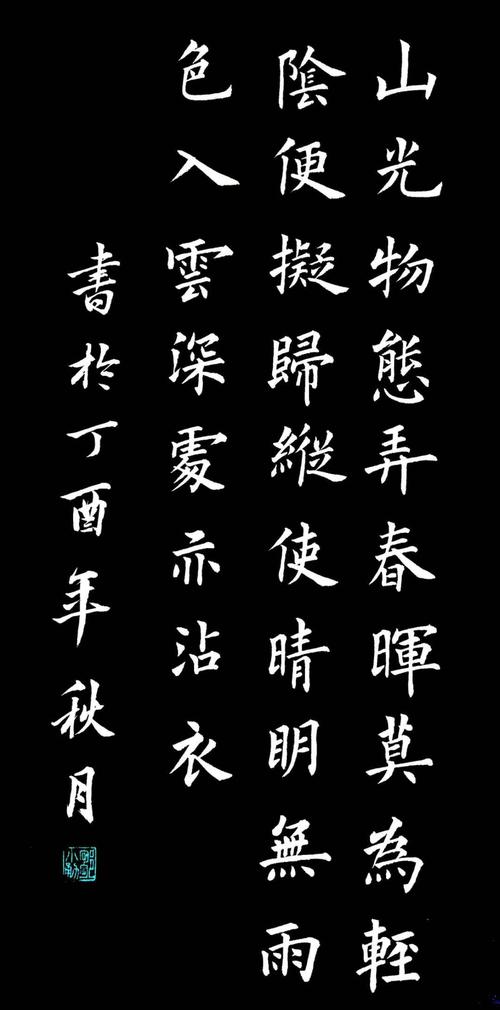 山光物態弄春暉莫為輕
陰便擬歸縱使晴明無雨
色入雲深處亦沾衣
書於丁酉年秋月